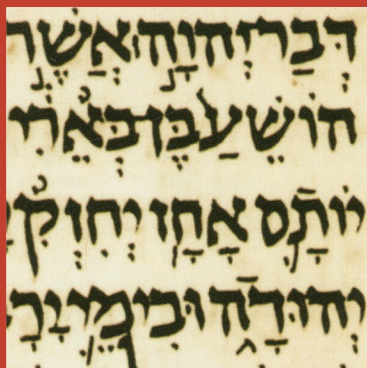 דְּבַר יְהוָה אֲשֶׁר
הוֹשֵׁעַ בֶּן בְּאֵרִי
יוֹתָם אָחָז יְחִזְקִ
יְהוּדָה וּבִימֵי יָרָ